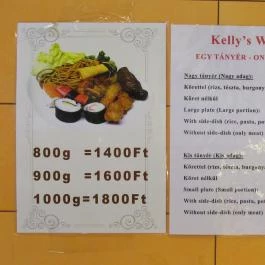 800g =1400Ft
900g =1600Ft
1000g=1800Ft
Kelly's W
EGY TÁNYÉR - ON
Nagy tányér (Nagy adag):
Körettel (rizs, tészta, burgony
Köret nélkül
Large plate (Large portion):
With side-dish (rice, pasta, po
Without side-dish (only meat)
Kis tányér (Kis adag):
Körettel (rizs, tészta, burgony
Köret nélkül
Small plate (Small portion):
With side-dish (rice, pasta, po
Without side-dish (only meat)